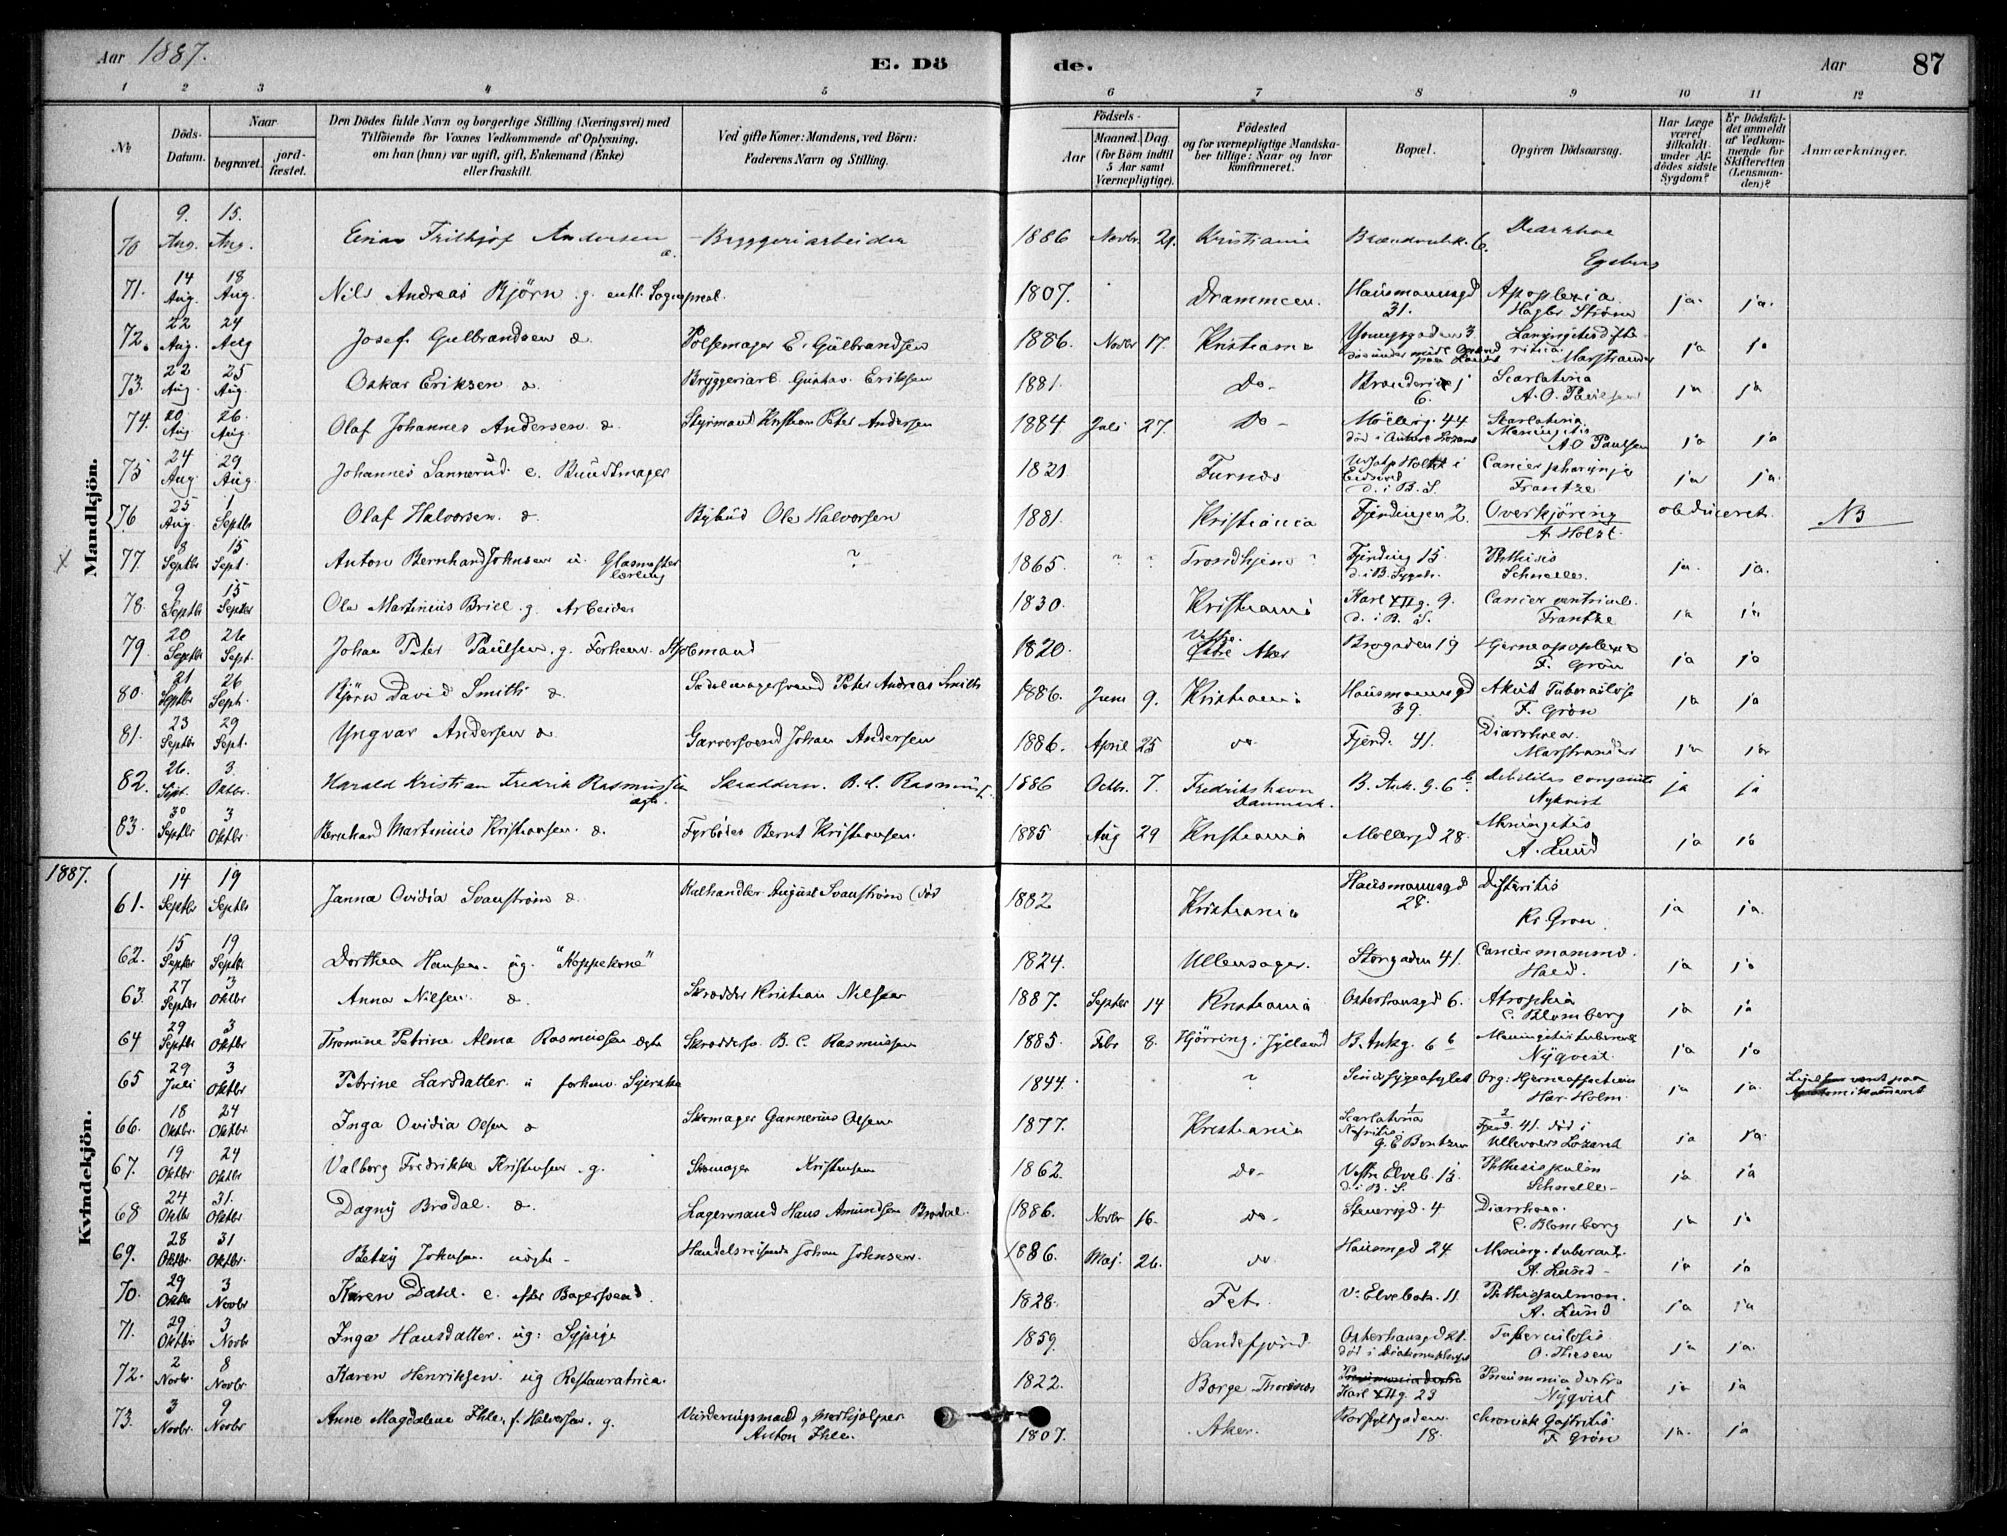 Aar 1887.
E. Dö
de.
Aar
87
1 2 3 4 5 6 7 8 9 10 11 12
№
Döds-Datum.
Naar
begravet.
jord-fæstet.
Den Dödes fulde Navn og borgerlige Stilling (Næringsvei) med
Tilföiende for Voxnes Vedkommende af Oplysning,
om han (hun) var ugift, gift, Enkemand (Enke)
eller fraskilt.
Ved gifte Koner: Mandens, ved Börn:
Faderens Navn og Stilling.
Födsels-
Aar
Maaned. Dag.
(for Börn indtil
5 Aar samt
Værnepligtige).
Födested
og for værnepligtige Mandska-
ber tillige: Naar og hvor
konfirmeret.
Bopæl.
Opgiven Dödsaarsag.
Har Læge
været
tilkaldt
under Af-
dödes sidste
Sygdom?
Er Dödsfal-
det anmeldt
af Vedkom-
mende for
Skifteretten
(Lensman-
den)?
Anmærkninger.
Mandkjön.
70 9. Aug. 15. Aug. Andersen Bryggeriarbeider 1886 Novbr. 29. Kristiania 6. Diarrhoe
71. 14 Aug. 18 Aug. Nils Andreas Björn g. 1807. Drammen. Hausmannsgd 31. Apoplexia ja. ja.
72. 22 Aug. 24 Aug Josef Gulbrandsen Pölsemager E. Gulbrandsen 1886. Novbr 17. Kristiania Youngsgaden 3 Marstrander ja ja
73. 22 Aug. 25 Aug. Oskar Eriksen Bryggeriarb. Gustav Eriksen 1881. Do- 6. Scarlatina A. O. Paulsen ja ja
74. 20 Aug. 26. Aug. Olaf Johannes Andersen Styrmand Kristian Peter Andersen 1884 Juli 27. Do- Mölleng. 44 Scarlatina Meningitis A O Paulsen ja ja
75 24 Aug. 29 Aug. Johannes Sannerud. e. Buntmager 1821 Furnes Eidsvold d. i B. S. Cancer pharyngis Frantze ja ja.
76 25 Aug. 1 Septbr Olaf Halvorsen. Bybud Ole Halvorsen 1881. Kristiania Fjerdingen 2. Overkjöring A Holst. obduceret. NB
77. 8 Septbr 15 Sept. Anton Bernhard Johnsen u. Glasmester læreling ? 1865. " " Trondhjem Fjerding 15 d. i B. Sygeh. Phthisis Schnelle. ja. ja.
78. 9 Septbr 15 Septbr Ole Martinius Briel g. Arbeider 1830. Kristiania Karl XIIg. 9. d. i B. S. Cancer ventriculi. Frantze ja ja
79 20 Septbr 26 Sept. Johan Peter Paulsen. g. 1820. Vestre Aker Brogaden 19 Hjerneapoplexi F. Grön ja ja
80. 21 Septbr 26 Sept. Björn David Smith Sadelmagersvend Peter Andreas Smith 1886. Juni 9. Kristiania Hausmannsgd 39. Akut Tuberculose F. Grön ja ja
81. 23 Septbr 29 Sept. Yngvar Andersen Garversvend Johan Andersen 1886. April 25 do Fjerd. 41. Diarrhoea. Marstrander ja ja
82. 26. Sept. 3. Oktbr. Harald Kristian Fredrik Rasmussen ægte Skræddersv. B. C. Rasmussen 1886 Octbr. 7. Fredrikshavn Danmark. B. Ank. G. 6 b debilitas congenita Nykvist ja ja
83. 30 Septbr 3 Oktbr Bernhard Martinius Kristiansen Fyrböter Bernt Kristiansen 1885 Aug 29 Kristiania Möllergd 28. Meningitis A. Lund ja ja
1887.
Kvindekjön.
61. 14 Septbr 19 Septbr Janna Ovidia Svanström Kulhandler August Svanström (död 1882 Kristiania Hausmannsgd 28. Difteritis Kr. Grøn ja ja.
62. 15 Septbr 19 Septbr Dorthea Hansen. ug. "Koppekone" 1824. Ullensager. Storgaden 41. Cancer mammæ. ja ja
63. 27 Septbr 3 Oktbr Anna Nilsen Skrædder Kristian Nilsen 1887. Septbr 14 Kristiania Osterhausgd 6. Atrophia C. Blomberg ja ja
64 29 Septbr 3 Oktbr Thomine Petrine Alma Rasmussen ægte Skræddersv. B. C. Rasmussen 1885. Febr 8. Hjörring i Jylland B. Ankg. 6 b Meningitis tubercul. Nyqvist. ja ja
65 29 Juli 3 Oktbr Petrine Larsdatter u forhenv. 1844. ? Sindssygeasylet Org: Hjerneaffection Har. Holm ja ja.
66. 18 Oktbr. 24 Oktbr. Inga Ovidia Olsen Skomager Gunnerius Olsen 1877. Kristiania Scarlatina Nefritis. Fjerd. 41. död i Ullevolds Lazaret ja ja.
67. 19 Oktbr 24 Oktbr Valborg Fredrikke Kristensen g. Skomager Kristensen 1862. do- Vestre Elveb. 15. d. i B. S. Phthisis pulm Schnelle- ja ja
68 24 Oktbr 31. Oktbr Dagny Brodal Lagermand Hans Amundsen Brodal. 1886. Novbr 16. do- Stenersgd. 4. Diarrhoea C. Blomberg ja ja
69. 28 Oktbr 31 Oktbr. Betzy Johnsen uægte- Handelsreisende Johan Johnsen. 1886. Maj. 26. do Hausmgd 24 Mening. tubercul. A. Lund- ja ja
70. 29 Oktbr 3 Novbr Karen Dahl e. efter Bagersvend. 1828. Fet. V. Elvebak. 11. Phthis pulmon. A. Lund ja ja
71. 29 Oktbr 3 Novbr Inga Hansdatter. ug: Sypige 1859. Sandefjord Osterhausgd död i Diakonisse Tuberculosis. O. Thesen ja ja.
72. 2 Novbr. 8 Novbr Karen Henriksen ug Restauratrice 1822. Borge Pneumonia dextra Karl XIIg. 23 Pneumonia dextra Nyqvist ja ja
73. 3 Novbr. 9 Novbr. Anne Magdalene Ihle, f. Halvorsen. g. Vurderingsmand Anton Ihle. 1807. Aker. Korsfylsgaden. 18. Chronisk Gastritis. F. Grön ja. ja